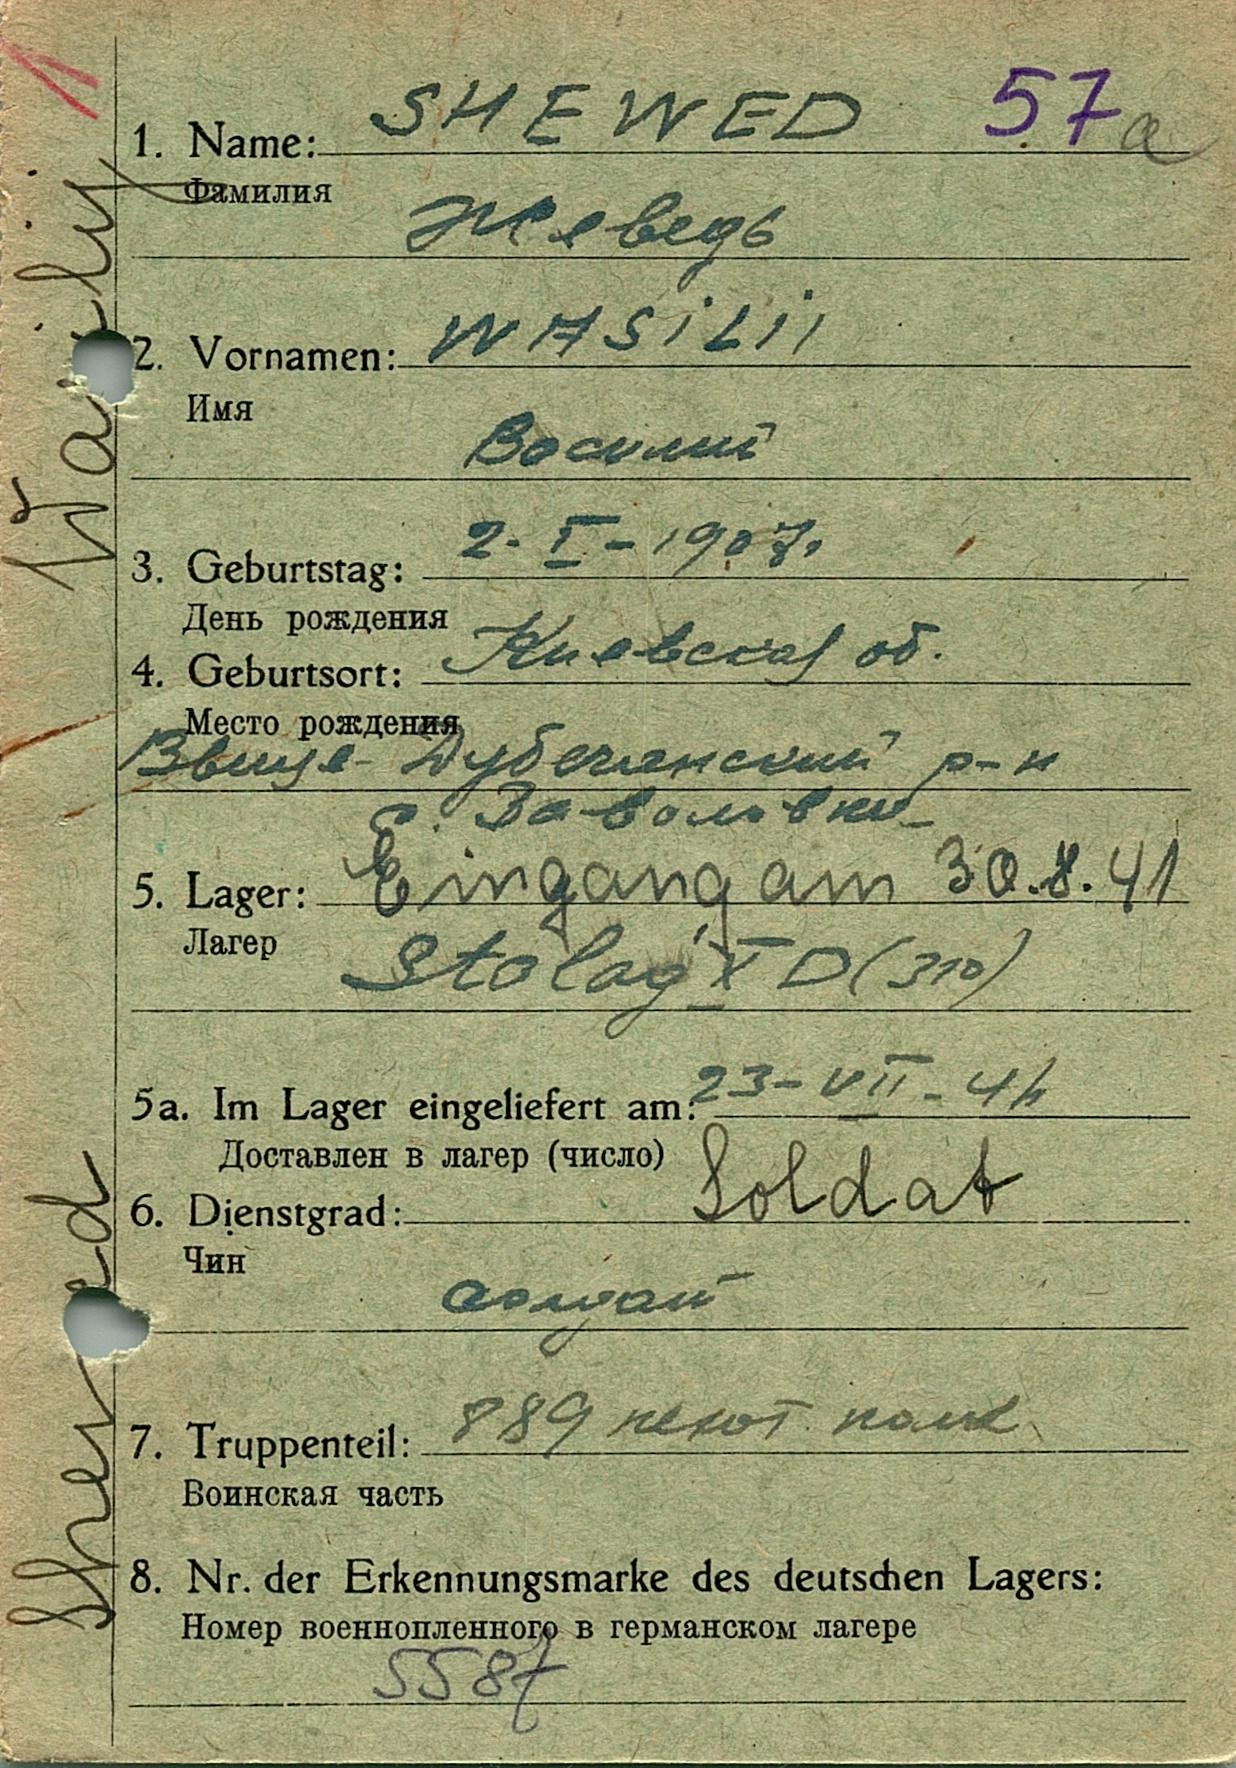 57a
1. Name: SHEWED
Фамилия
Жеведь
2. Vornamen: WASiLii
Имя
Василий
3. Geburtstag: 2-I-1907.
День рождения
4. Geburtsort: Киевская об.
Место рождения
Дубечанский р-н
с.
5. Lager: Eingang am 30.8.41
Лагер
Stalag XD (310)
5a. Im Lager eingeliefert am: 23-VII-41
Доставлен в лагер (число)
6. Dienstgrad: Soldat
Чин
солдат
7. Truppenteil: 889 пехот полк
Воинская часть
8. Nr. der Erkennungsmarke des deutschen Lagers:
Номер военнопленного в германском лагере
5587
Shewed Wasilij